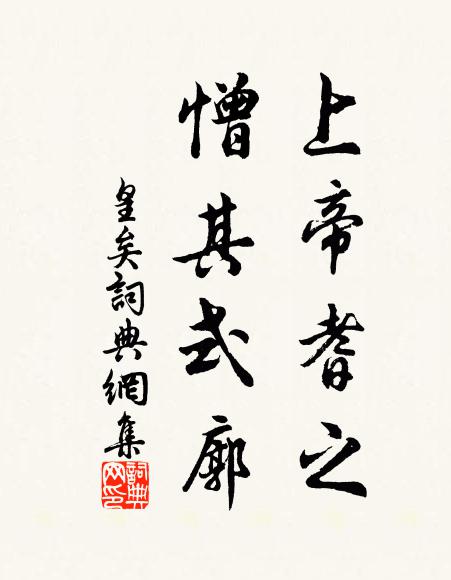 上帝耆之
憎其式廓
皇矣詞典網集
詞典
网印